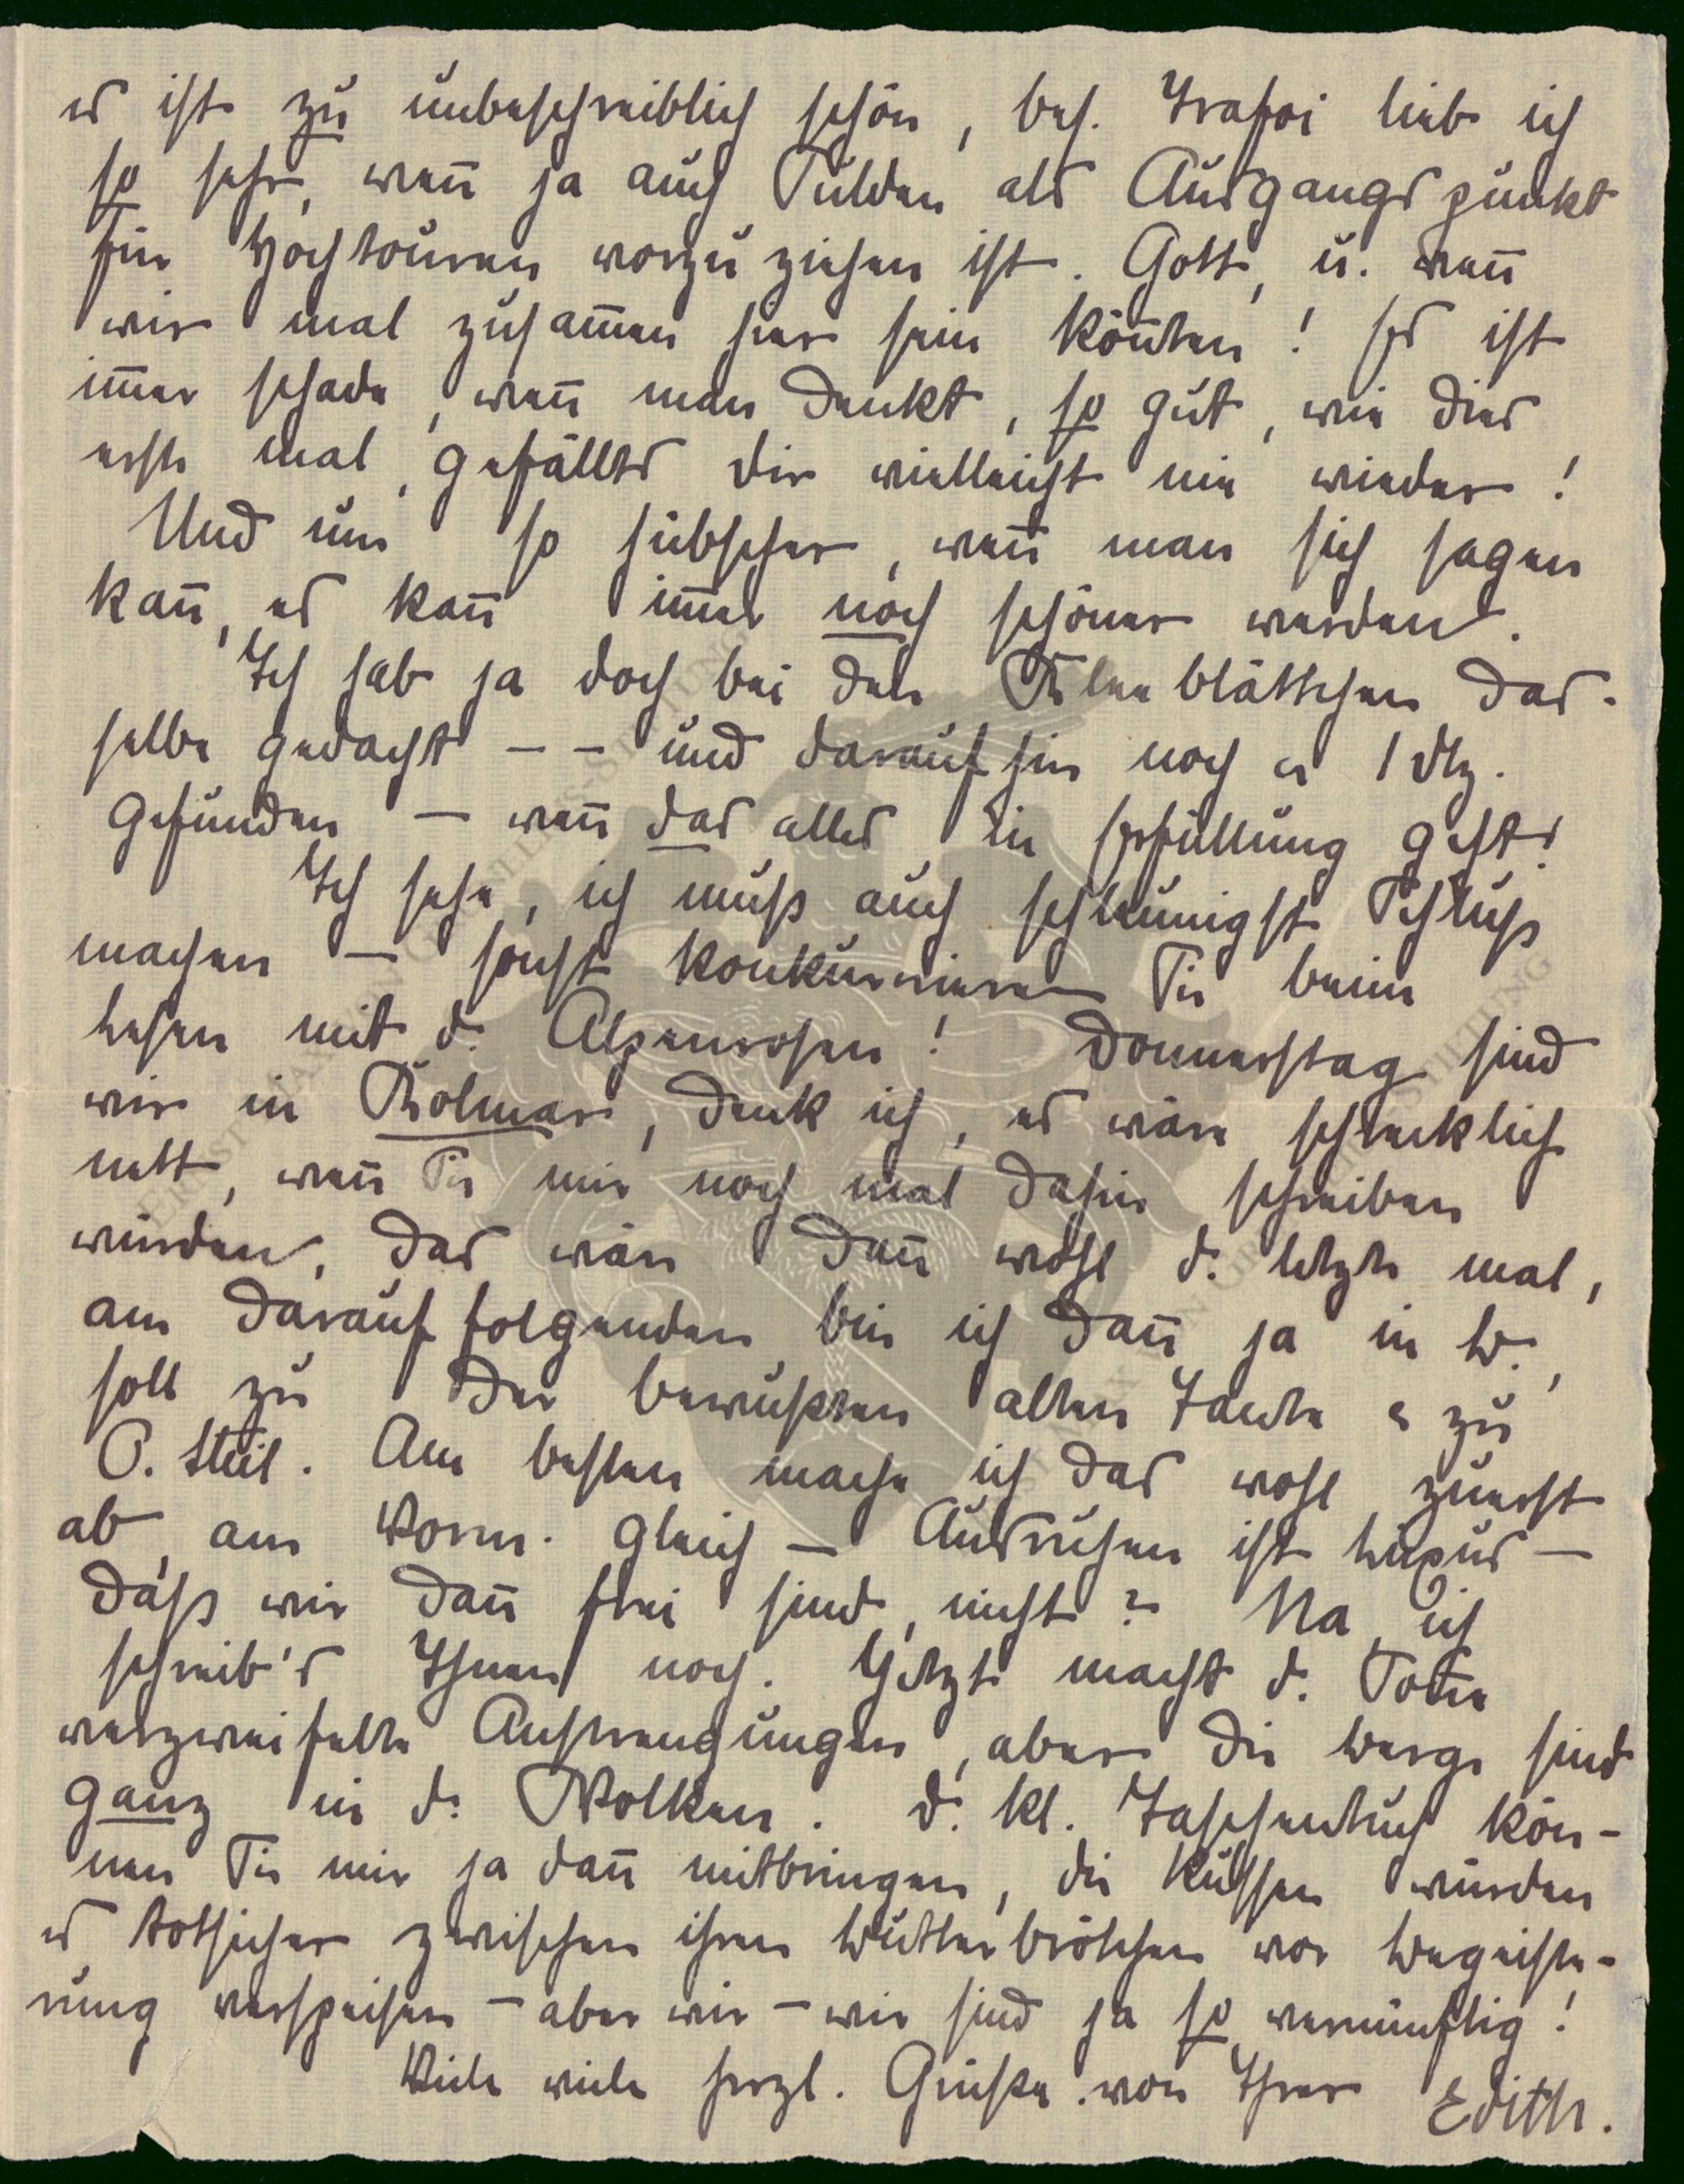 es ist zu unbeschreiblich schön, bes. Trafoi lieb ich
so sehr, wen̄ ja auch Sulden als Ausgangspunkt
für Hochtouren vorzuziehen ist. Gott, u. wen̄
wir mal zusam̄en hier sein kön̄ten! Es ist
im̄er schade, wen̄ man denkt, so gut, wie dies
erste mal, gefällts dir vielleicht nie wieder!
Und um so hübscher, wen̄ man sich sagen
kan̄, es kan̄ im̄er noch schöner werden.
Ich hab ja doch bei den Kleeblättchen das-
selbe gedacht -- und daraufhin noch 1 dtz.
gefunden - wen̄ das alles in Erfüllung geht!
Ich sehe, ich muß auch schleunigst Schluß
machen - sonst konkurrieren Sie beim
Lesen mit d. Alpenrosen! Donnerstag sind
wir in Kolmar, denk ich, es wäre schrecklich
nett, wen̄ Sie mir noch mal dahin schreiben
würden, das wär dan̄ wohl d. letzte mal,
am darauf folgenden bin ich dan̄ ja in B.,
soll zu der bewußten alten Tante u zu
O. Steil. Am besten mache ich das wohl zuerst
ab, am Vorm. gleich - Ausruhen ist Luxus -
daß wir dan̄ frei sind, nicht? Na ich
schreib's Ihnen noch. Jetzt macht d. Son̄e
verzweifelte Anstrengungen, aber die Berge sind
ganz in d. Wolken. D. kl. Taschentuch kön-
nen Sie mir ja dan̄ mitbringen, die Russen würden
es totsicher zwischen ihren Butterbrötchen vor Begeiste-
rung verspeisen - aber wir - wir sind ja so vernünftig!
Viele viele herzl. Grüße von Ihrer Edith.